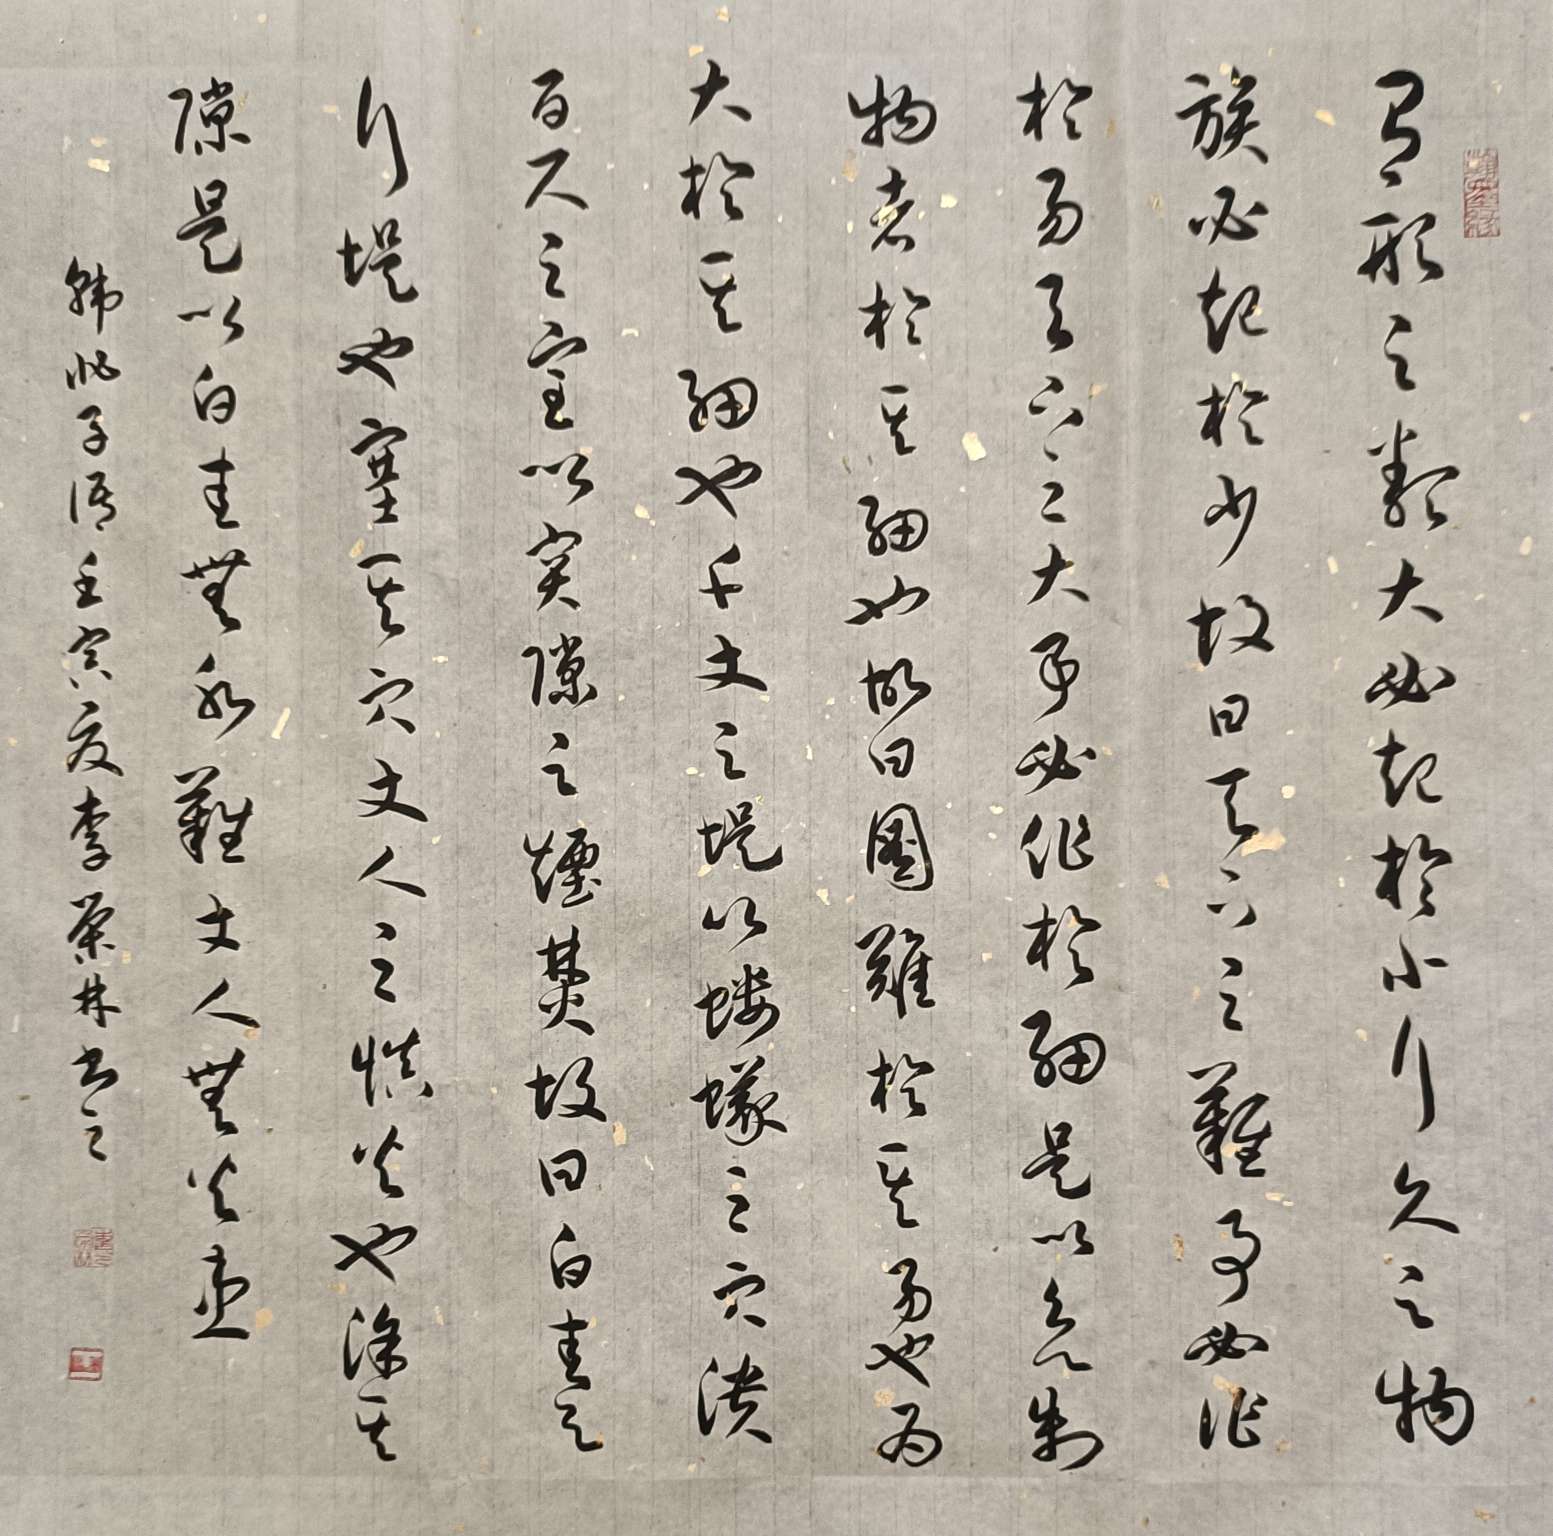 有形之類大必起於小行久之物
族必起於少故曰天下之難事必作
於易天下之大事必作於細是以欲制
物者於其細也故曰圖難於其易也為
大於其細也千丈之堤以螻蟻之穴潰
百尺之室以突隙之煙焚故曰白圭之
行堤也塞其穴丈人之慎火也塗其
隙是以白圭無水難丈人無火患
韓非子語壬寅夏李榮林書之